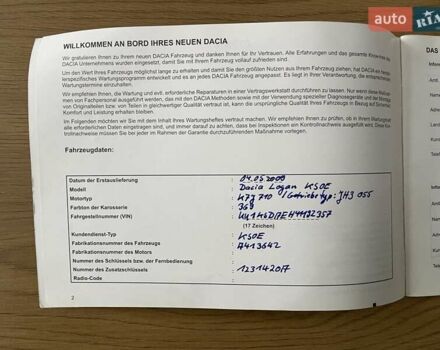 auto RIA
WILLKOMMEN AN BORD IHRES NEUEN DACIA
Wir gratulieren Ihnen zu Ihrem neuen DACIA Fahrzeug und danken Ihnen für Ihr Vertrauen. Alle Erfahrungen und das gesamte Können des
DACIA Unternehmens wurden eingesetzt, damit Sie mit Ihrem Fahrzeug vollauf zufrieden sind.
Um den Wert Ihres Fahrzeugs möglichst lange zu erhalten und damit Sie den größten Nutzen aus Ihrem Fahrzeug ziehen, hat DACIA ein
spezifisches Wartungsprogramm entwickelt und es an jedes DACIA Fahrzeug angepasst. Es liegt in Ihrer Verantwortung, die entsprechenden
Wartungstermine einzuhalten.
Wir empfehlen Ihnen, die Wartung und evtl. erforderliche Reparaturen in einer Vertragswerkstatt durchführen zu lassen. Nur wenn diese
von Fachpersonal ausgeführt werden, das mit den DACIA Methoden sowie mit der Verwendung spezieller Diagnosegeräte und der Montage
von Originalteilen bzw. von Teilen in gleichwertiger Qualität vertraut ist, kann die ursprüngliche Qualität Ihres Fahrzeugs in Bezug auf Sicherheit,
Komfort und Leistung erhalten bleiben.
Im Folgenden möchten wir Sie mit dem Inhalt Ihres Wartungsheftes vertraut machen. Wir empfehlen Ihnen zu prüfen, ob in Ihrem Wartungsheft
alle erforderlichen Daten eingetragen sind, und immer darauf zu achten, dass bei Inspektionen ein Kontrollnachweis ausgefüllt wird. Diese Kontrollnachweise
müssen Sie bei jeder im Rahmen der Garantie durchzuführenden Maßnahme vorlegen.
Fahrzeugdaten:
Datum der Erstauslieferung : 04.05.2009
Modell : Dacia Logan KSOE
Motortyp : K7J 710 / Getriebetyp: JH3 055
Farbton der Karosserie : 369
Fahrgestellnummer (VIN) :
(17 Zeichen)
Kundendienst-Typ : KSOE
Fabrikationsnummer des Fahrzeugs : A413642
Fabrikationsnummer des Motors :
Nummer des Schlüssels bzw. der Fernbedienung :
Nummer des Zusatzschlüssels : 12314201A
Radio-Code :
2
DAS